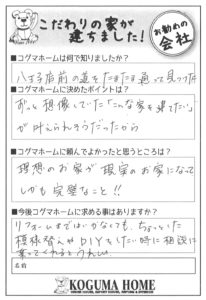 こだわりの家が
建ちました!
お勧めの
会社
■コグマホームは何で知りましたか?
の道をたまたま通って見つけた
■コグマホームに決めたポイントは?
ずっと想像していた「こんな家を建てたい」
が叶えられそうだったから
■コグマホームに頼んでよかったと思うところは?
理想のお家が現実のお家になって
しかも完璧なこと!!
■今後コグマホームに求める事はありますか?
リフォームまではいかなくても、ちょっとした
模様替えやDIYをしたい時に相談に
乗ってくれるとうれしい
名前
KOGUMA HOME